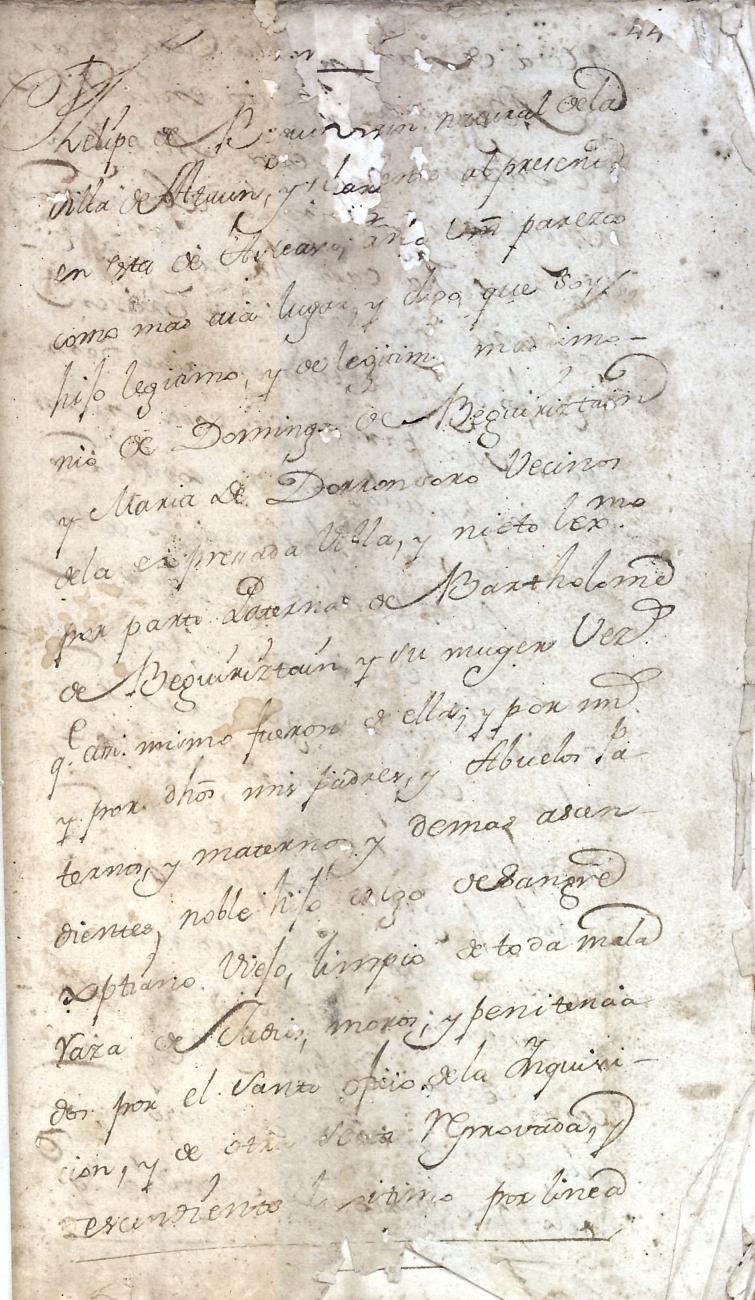 44
Phelipe de natural dela
Villa de Ataun, y al presente
en esta de Vm parezco
como mas aia lugar, y digo que soy
hijo legitimo, y de legitimo matrimo-
nio de Domingo de Beguiriztain
y Maria de Dorronsoro Vecinos
dela expresada Villa, y nieto lexmo
por parte Paterna de Bartholome
de Beguiriztain y su muger Vez
qe asi mismo fueron de ella; y por mi
y por dhos mis padres, y Abuelos Pa-
ternos, y maternos y demas ascen-
dientes, noble hijo dalgo de Sangre
xptiano Viejo, limpio de toda mala
raza de Judios, moros, y penitencia
dos por el Santo ofizio dela Ynquisi-
cion, y de otra secta reprovada, y
descendiente lexitimo por linea